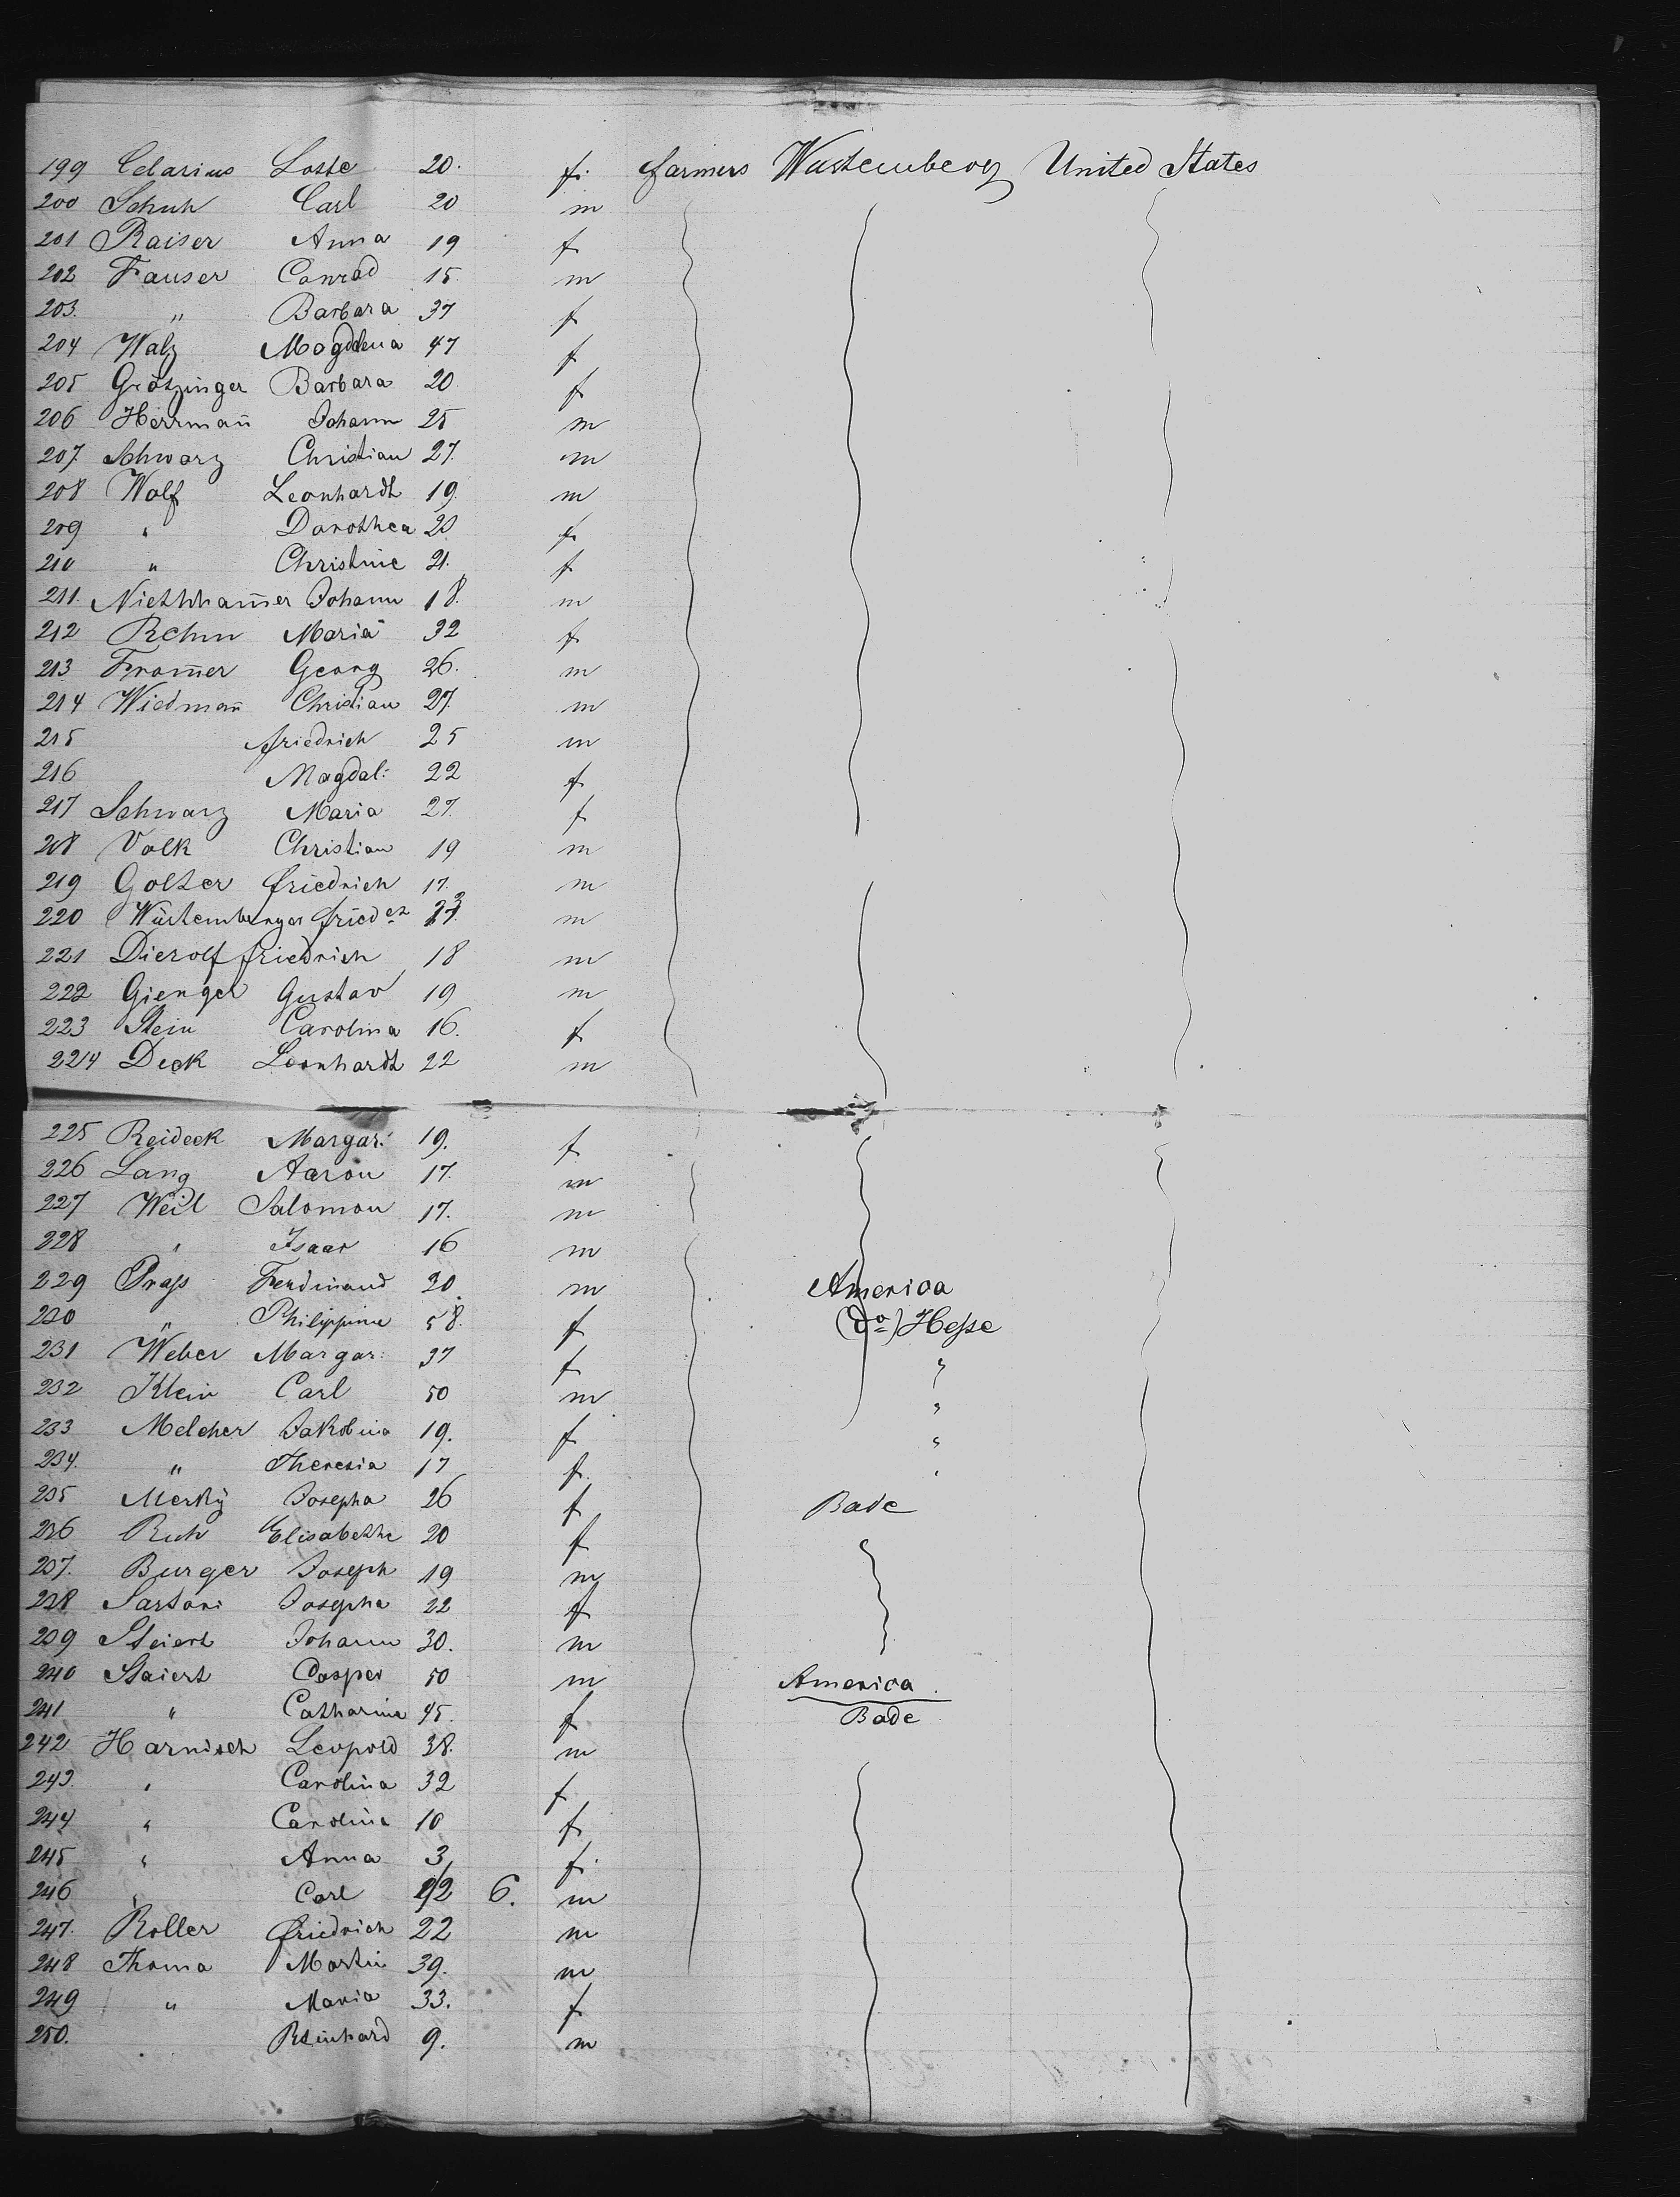 199 Celarius Lotte 20. f. farmers Wurtemberg United States
200 Schuh Carl 20 m
201 Raiser Anna 19 f
202 Fauser Conrad 15. m
203. " Barbara 37 f
204 Walz Magdlena 47 f
205 Grötzinger Barbara 20 f
206 Herrman̄ Johann 25 m
207. Schwarz Christian 27. m
208 Wolf Leonhardt 19. m
209 " Dorothea 20 f
210 " Christine 21. f
211. Niethham̄er Johann 18. m
212 Rehm Maria 32 f
213 From̄er Georg 26. m
214 Wiedman̄ Christian 27. m
215 friedrich 25 m
216 Magdal: 22 f
217 Schwarz Maria 27. f
218 Volk Christian 19 m
219 Golter friedrich 17. m
220 Würtemberger fried 23. m
221 Dierolf friedrich 18 m
222 Giengel Gustav 19 m
223 Stein Carolina 16. f
224 Deck Leonhardt 22 m
225 Reideck Margar: 19. f
226 Lang Aaron 17. m
227 Weil Salomon 17. m
228 " Isaac 16 m
229 Prass Ferdinand 20. m America
230 " Philippine 58. f (do) Hesse
231 Weber Margar: 37 f "
232 Klein Carl 50 m "
233 Melcher Jakobina 19. f "
234. " Theresia 17 f. "
235 Merkÿ Josepha 26 f Bade
236 Ruh Elisabethe 20 f
237. Burger Joseph 19 m
238 Sartori Josepha 22 f
239 Steiert Johann 30. m
240 Staiert Casper 50 m America
241 " Catharina 45. f Bade
242 Harnisch Leopold 38. m
243. " Carolina 32 f
244 " Carolina 10 f
245 " Anna 3 f.
246 " Carl 6. m
247. Roller friedrich 22 m
248 Thoma Martin 39. m
249 " Maria 33. f
250. Reinhard 9. m